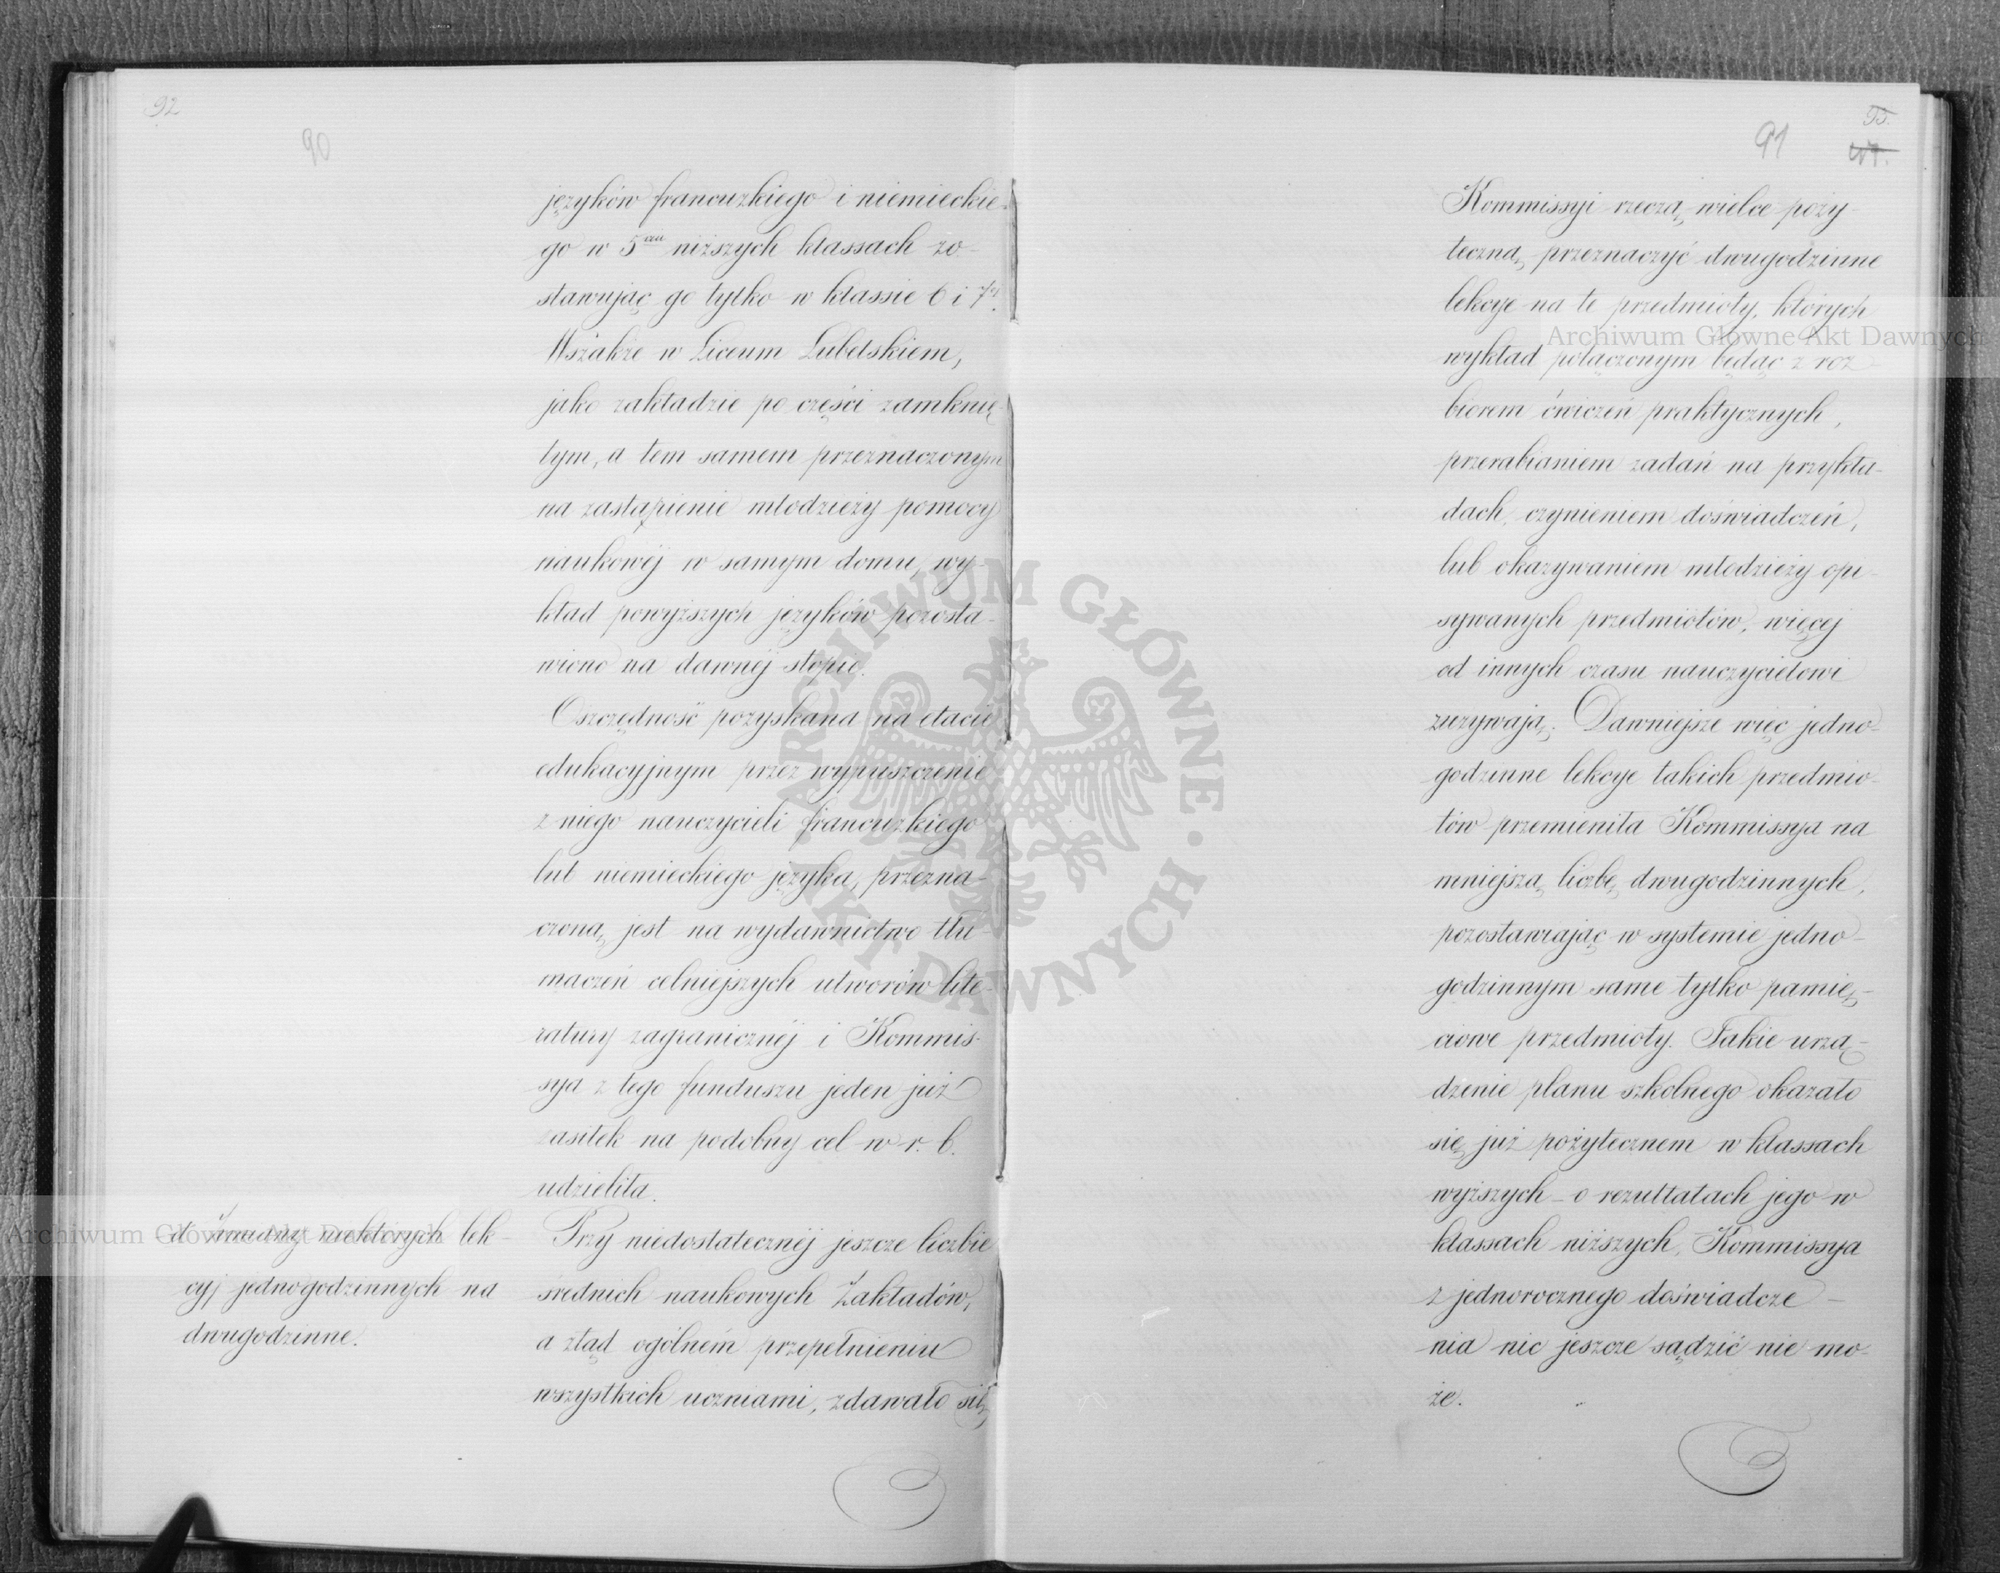 92
90
języków francuzkiego i niemieckie-
go w 5ciu niższych klassach zo-
stawując go tylko w klassie 6 i 7éj.
Wszakże w Liceum Lubelskiem,
jako zakładzie po części zamknię-
tym, a tem samem przeznaczonym
na zastąpienie młodzieży pomocy
naukowéj w samym domu, wy-
kład powyższych języków pozosta-
wiono na dawnéj stopie.
Oszczędność pozyskana na etacie
edukacyjnym przez wypuszczenie
z niego nauczycieli francuzkiego
lub niemieckiego języka, przezna-
czoną jest na wydawnictwo tłu-
maczeń celniejszych utworów lite-
ratury zagranicznéj i Kommis-
sya z tego funduszu jeden już
zasiłek na podobny cel w r. b.
udzieliła.
d. Zmiany niektórych lek-
cyj jednogodzinnych na
dwugodzinne.
Przy niedostatecznéj jeszcze liczbie
średnich naukowych Zakładów,
a ztąd ogólném przepełnieniu
wszystkich uczniami, zdawało się
91
93.
Kommissyi rzeczą wielce poży-
teczną, przeznaczyć dwugodzinne
lekcye na te przedmioty, których
wykład połączonym będąc z roz-
biorem ćwiczeń praktycznych,
przerabianiem zadań na przykła-
dach, czynieniem doświadczeń,
lub okazywaniem młodzieży opi-
sywanych przedmiotów, więcej
od innych czasu nauczycielowi
zużywają. Dawniejsze więc jedno-
godzinne lekcye takich przedmio-
tów przemieniła Kommissya na
mniejszą liczbę dwugodzinnych,
pozostawiając w systemie jedno-
godzinnym same tylko pamię-
ciowe przedmioty. Takie urzą-
dzenie planu szkolnego okazało
się już pożytecznem w klassach
wyższych – o rezultatach jego w
klassach niższych, Kommissya
z jednorocznego doświadcze-
nia nic jeszcze sądzić nie mo-
że.
Archiwum Główne Akt Dawnych
Archiwum Główne Akt Dawnych
ARCHIWUM GŁÓWNE · AKT DAWNYCH ·